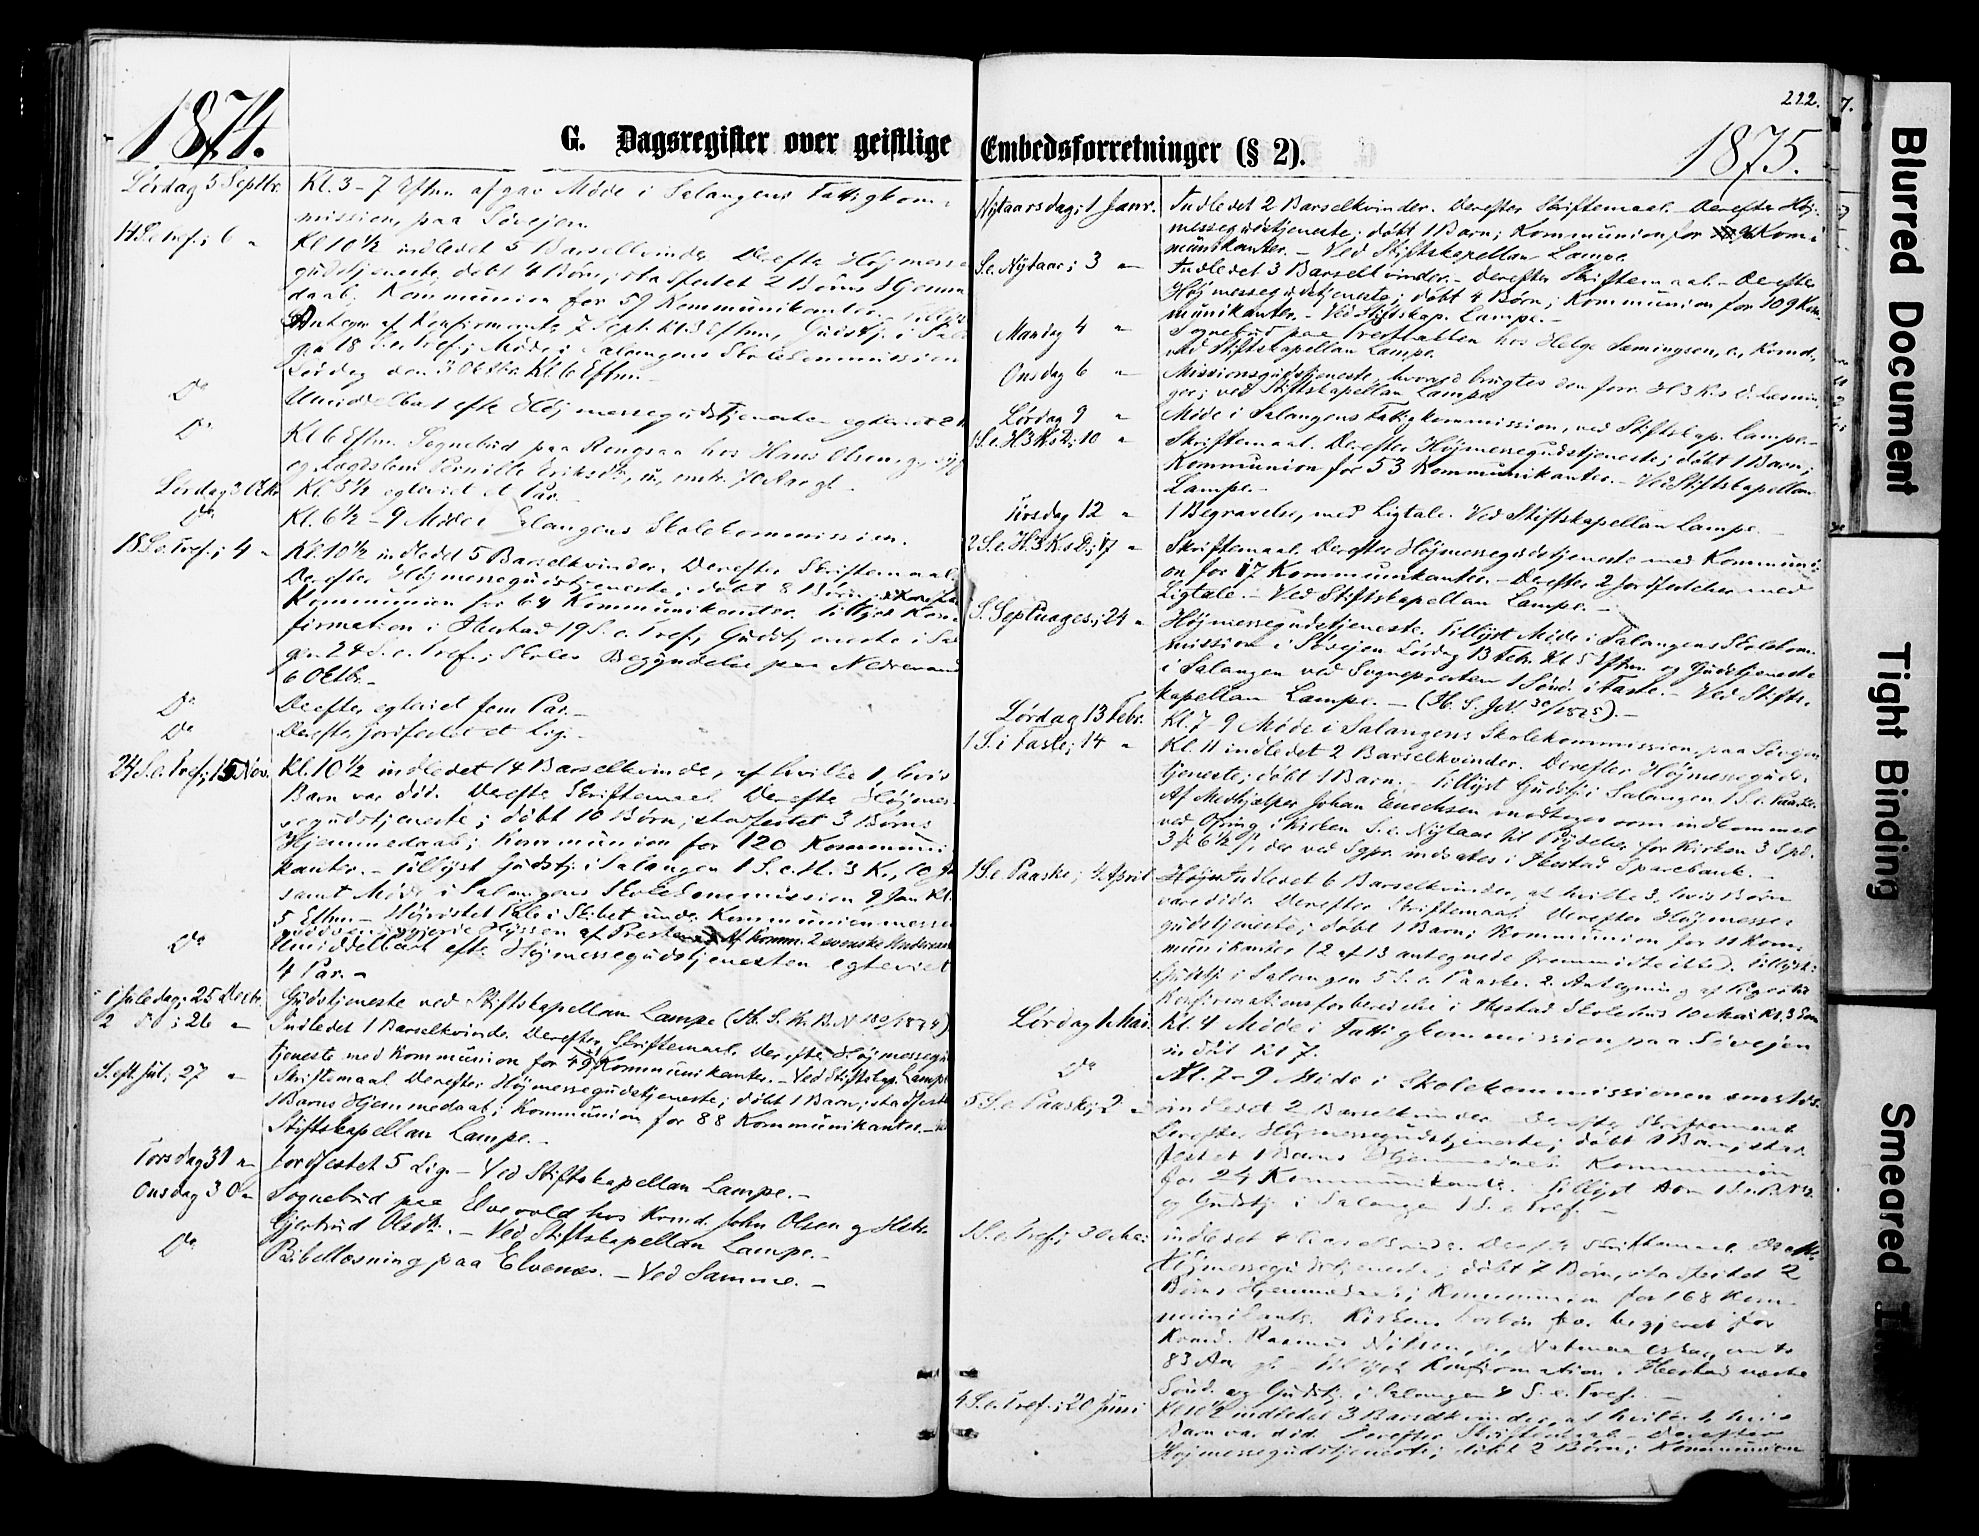 1874.
G. Dagsregister over geistlige
Lørdag 5 Septbr. Kl. 3-7 Eftm. afgav Møde i Salangens Fattigkom-
mission, paa Søvejen.
14 S.e.Tref.; 6 " Kl 10 1/2 indledet 5 Barselkvinder. Derefter Højmesse
gudstjeneste, døbt 4 Børn; stadfestet 2 Børns Hjemme
daab; Kommunion for 59 Kommunikanter.
af Konfirmanter 7 Sept. Kl 3 Eftm., Gudstj. i Sala
gen 18 S.e.Tref.; Møde i Salangens Skolekommission
Lørdag den 3 Oktbr. Kl. 6 Eftm. -
Do Umiddelbart efter Højmessegudstjenesten egteviet 2
Do Kl 6 Eftm. Sognebud paa Rengsaa hos Hans Olsen, g.,
og Lægdslem Pernille Eriksdtr., u., omtr. 70 Aar gl. -
Lørdag 3 Oktr. Kl. 5 1/2 egteviet et Par. -
Do Kl. 6 1/2 - 9 Møde i Salangens Skolekommission.
18 S.e.Tref.; 4 " Kl. 10 1/2 indledet 5 Barselkvinder. Derefter Skriftemaal.
Derefter Højmessegudstjeneste; døbt 8 Børn;
Kommunion for 64 Kommunikanter. Tillyst Kon-
firmation i Ibestad 19 S.e.Tref.; Gudstjeneste i Sal
gen 24 S.e.Tref.; Skoles Begyndelse paa Nedrevand
6 Oktbr. -
Do Derefter egteviet fem Par. -
Do Derefter jordfestet et Lig. -
24 S.e.Tref.; 15 Nov. Kl. 10 1/2 indledet 14 Barselkvinder, af hvilke 1, hvis
Barn var død. Derefter Skriftemaal. Derefter Højmes-
segudstjeneste; døbt 10 Børn; stadfestet 3 Børns
Hjemmedaab; Kommunion for 120 Kommuni
kanter. - Tillyst Gudstj. i Salangen 1 S.e.H. 3 K., 10 Jan
samt Møde i Salangens Skolekommission 9 Jan Kl.
5 Eftm. - Højrøstet Tale i Skibet under Kommunionmessen
af Presten. Af Komm. 2 svenske
Do Umiddelbart efter Højmessegudstjenesten egteviet
4 Par. -
1 Juledag; 25 Decbr. Gudstjeneste ved Stiftskapellan Lampe
2 Do; 26 " Indledet 1 Barselkvinde. Derefter Skriftemaal. Derefter Højmessegud
tjeneste med Kommunion for 49 Kommunikanter. - Ved Stiftskap. Lampe
S. eft. Jul; 27 " Skriftemaal. Derefter Højmessegudstjeneste; døbt 1 Barn; stadfestet
1 Barns Hjemmedaab; Kommunion for 88 Kommunikanter. -
Stiftskapellan Lampe. -
Torsdag 31 " Jordfestet 5 Lig. - Ved Stiftskapellan Lampe. -
Onsdag 30 " Sognebud paa Elvevold hos Kvmd. John Olsen og Hstr.
Gjertrud Olsdtr. - Ved Stiftskapellan Lampe. -
Do Bibellæsning paa Elvenes. - Ved Samme. -
222.
Embedsforretninger (§ 2).
1875.
Nytaarsdag; 1 Janr. Indledet 2 Barselkvinder. Derefter Skriftemaal. - Derefter Høj-
messegudstjeneste; døbt 1 Barn; Kommunion for Kom-
munikanter. - Ved Stiftskapellan Lampe.
S.e. Nytaar; 3 " Indledet 3 Barselkvinder. - Derefter Skriftemaal. - Derefter
Højmessegudstjeneste; døbt 4 Børn; Kommunion for 109 Kom-
munikanter. - Ved Stiftskap. Lampe. -
Mandag 4 " Sognebud paa hos Helge Sæmingsen, e., Kvmd.,
ved Stiftskapellan Lampe.
Onsdag 6 " Missionsgudstjeneste, hvorved brugtes den forr. H3Ks D. Læsnin-
ger; ved Stiftskapellan Lampe
Lørdag 9 " Møde i Salangens Fattigkommission, ved Stiftskap. Lampe. -
1 S.e. H3Ks D; 10 " Skriftemaal. Derefter Højmessegudstjeneste; døbt 1 Barn;
Kommunion for 53 Kommunikanter. - Ved Stiftskapellan
Lampe. -
Tirsdag 12 " 1 Begravelse, med Ligtale. Ved Stiftskapellan Lampe. -
2 S.e. H3Ks D; 17 " Skriftemaal. Derefter Højmessegudstjeneste med Kommuni-
on for 17 Kommunikanter. - Derefter 2 Jordfestelser med
Ligtale. - Ved Stiftskapellan Lampe. -
S. Septuages; 24 " Højmessegudstjeneste. Tillyst Møde i Salangens Skolekom-
mission i Søvejen Lørdag 13 Febr. Kl 5 Eftm. og Gudstjeneste
i Salangen ved Sognepresten 1 Sønd. i Faste. - Ved Stifts-
kapellan Lampe. -
Lørdag 13 Febr. Kl. 7-9 Møde i Salangens Skolekommission, paa Søvejen
1 S. i Faste; 14 " Kl. 11 indledet 2 Barselkvinder. Derefter Højmessegudes-
tjeneste; døbt 1 Barn. - Tillyst Gudstj. i Salangen 1 S.e. Paaske.
Af Medhjælper Johan Enochsen modtoges som indkommet
ved Ofring i Kirken S.e. Nytaar til Prydelse for Kirken 3 Spd.
3 6 1/2 , der ved Sgpr. indsattes i Ibestad Sparebank. -
1 S.e. Paaske; 4 April Indledet 6 Barselkvinder, af hvilke 3, hvis Børn
vare døde. Derefter Skriftemaal. Derefter Højmesse-
gudstjeneste; døbt 1 Barn; Kommunion for 11 Kom-
munikanter (2 af 13 antegnede fremmødte ikke). Tillyst:
Gudstj. i Salangen 5 S.e. Paaske. 2. Antegning af
Konfirmationsforberedelse i Ibestad Skolehus 10 Mai Kl. 3 Eem
Lørdag 1 Mai Kl. 4 Møde i Fattigkommission paa Søvejen
indtil Kl 7.
Do Kl. 7-9 Møde i Skolekommissionen sammesteds.
5 S.e. Paaske; 2 " indledet 2 Barselkvinder. Derefter Skriftemaal
Derefter Højmessegudstjeneste; døbt 1 Barn; stad-
festet 1 Barns Hjemmedaab. Kommunion
for 24 Kommunikanter. Tillyst
og Gudstj. i Salangen 1 S.e.Tref. -
1 S.e.Tref; 30 Mai indledet 4 Barselkvinder. Derefter Skriftemaal. Derefter
Højmessegudstjeneste; døbt 7 Børn, stadfestet 2
Børns Hjemmedaab; Kommunion for 168 Kom-
munikanter. Kirkens Forbøn begjæret for
Kvmd. Rasmus Nilsen, omtr
83 Aar gl. - Tillyst Konfirmation i Ibestad næste
Sønd. og Gudstj. i Salangen 4 S.e.Tref. -
4 S.e.Tref.; 20 Juni Kl 10 1/2 indledet 3 Barselkvinder, af hvilke 1, hvis
Barn var død. Derefter Skriftemaal. Derefter
Højmessegudstjeneste; døbt 2 Børn; Kommunion
Blurred Document
Tight Binding
Smeared